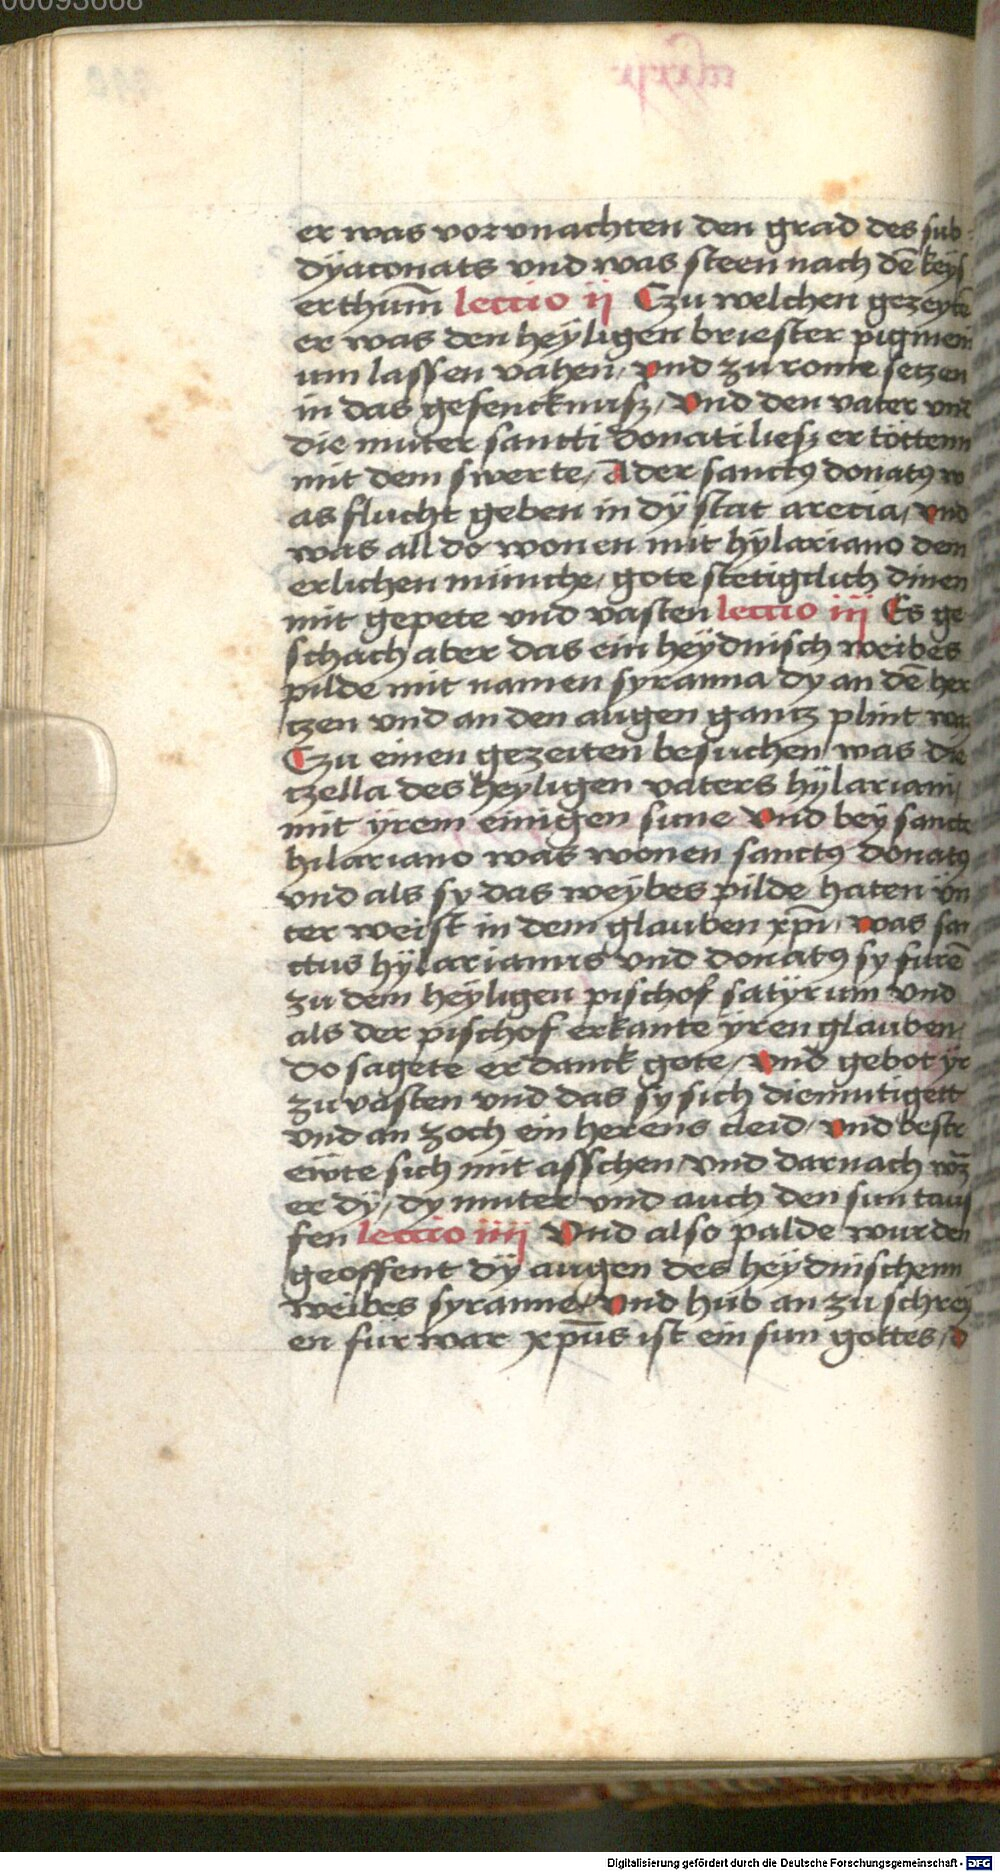 00093668
er was vorvnachten den grad des sub
dyaconats vnd was steen nach dē keys
erthum̄ leccio ij Czu welchen gezeyte
er was den heyligen briester pigmeni
um lassen vahen, vnd zu rome setzen
in das gefencknusz, Vnd den vater vnd
die muter sancti donati liesz er töttenn
mit dem swerte, Ader sanctꝰ donatꝰ w
as flucht geben in dÿ stat arecia, vnd
was all do wonen mit hÿlariano dem
erlichen münche, gote stetigclich dinen
mit gepete vnd vasten leccio iij Es ge
schach aber das ein heÿdnisch weibes
pilde mit namen syranna dy an dē her
tzen vnd an den augen gantz plint was
Czu einen gezeiten besuchen was die
tzella des heyligen vaters hÿlariani,
mit ÿrem einigen sune Vnd bey sancto
hilariano was wonen sanctꝰ donatꝰ
vnd als sy das weÿbes pilde haten vn
ter weist in dem glauben xp̄i, was san
ctus hÿlarianus vnd donatꝰ sy furē
zu dem heÿligen pischof satÿrum vnd
als der pischof erkante ÿren glauben,
do sagete er danck gote, vnd gebot ÿr
zu vasten vnd das sy sich diemutigett
vnd an zoch ein herens cleid, vnd bestr
eẅte sich mit asschen, vnd darnach
er dÿ, dy muter vnd auch den sun tauf
fen leccio iiij Vnd also palde wurden
geoffent dÿ augen des heÿdnischenn
weibes syranne, Vnd hub an zu schrey
en fur war xp̄us ist ein sun gottes, d
Digitalisierung gefördert durch die Deutsche Forschungsgemeinschaft - DFG